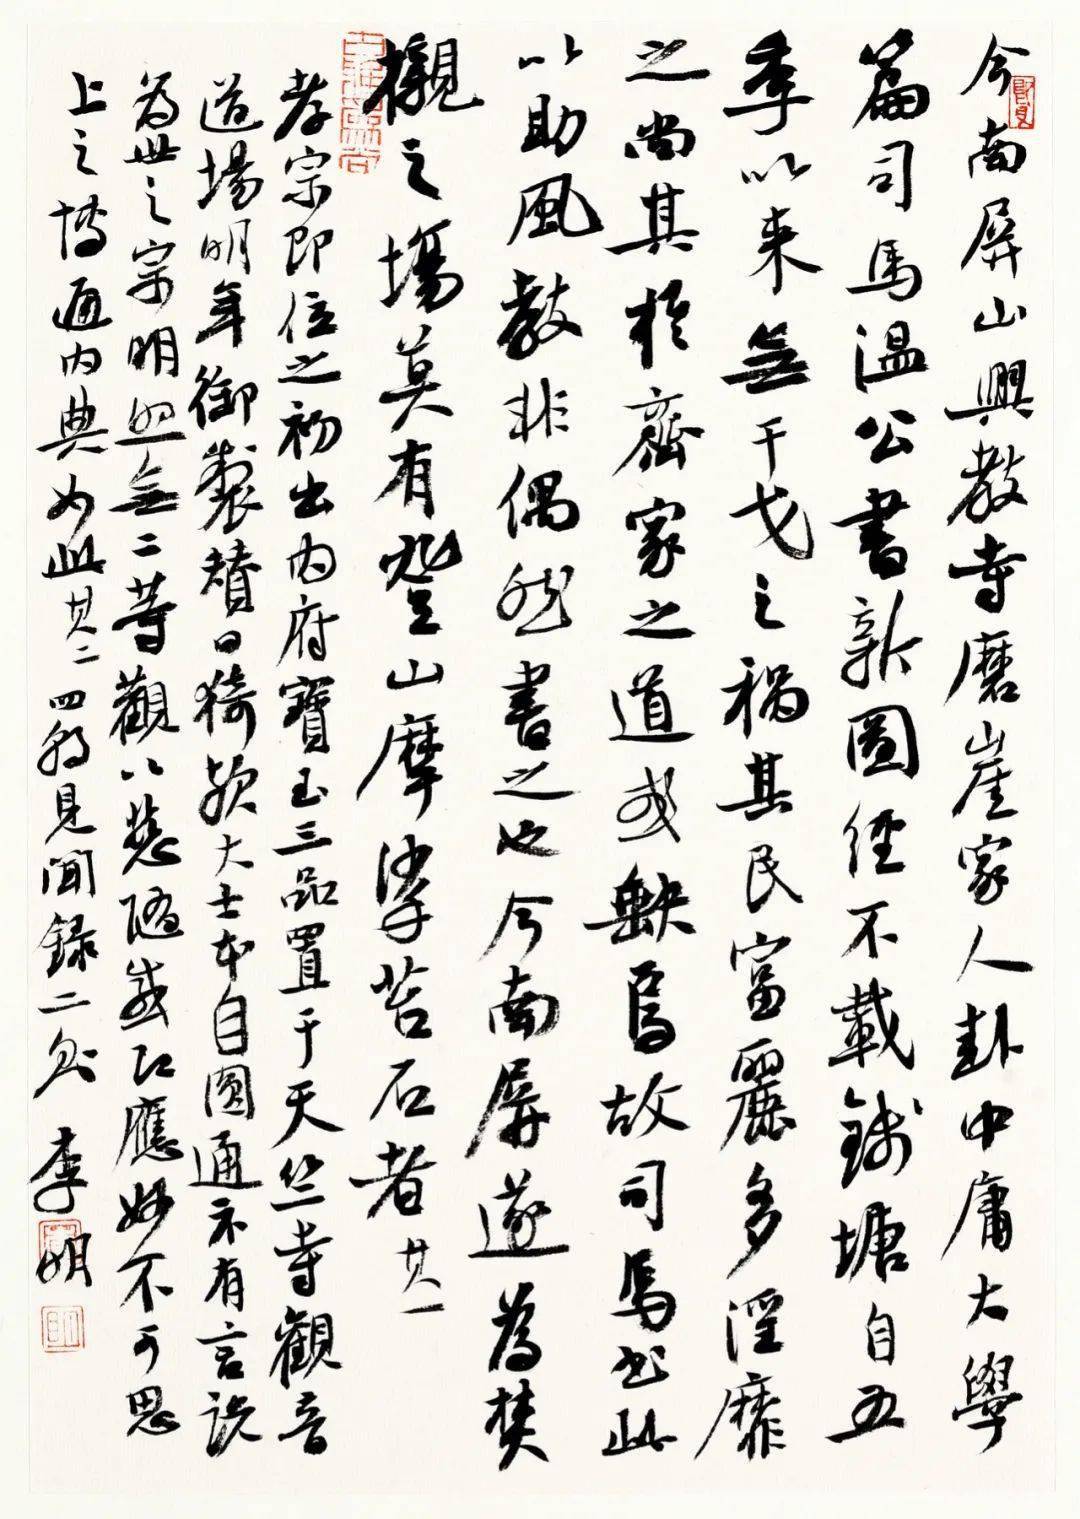 今南屏山興教寺磨崖家人卦中庸大學
篇司馬溫公書新圖經不載錢塘自五
季以來無干戈之禍其民富麗多淫靡
之尚其於齊家之道或缺焉故司馬書此
以助風教非偶然書之也今南屏遂為焚
櫬之場莫有登山摩挲苔石者其一
孝宗即位之初出內府寶玉三品置于天竺寺觀音
道場明年御製贊曰猗歟大士本自圓通示有言說
為世之宗明照無二等觀以慈隨感即應妙不可思
上之博通內典如此其二四朝見聞錄二則
李明